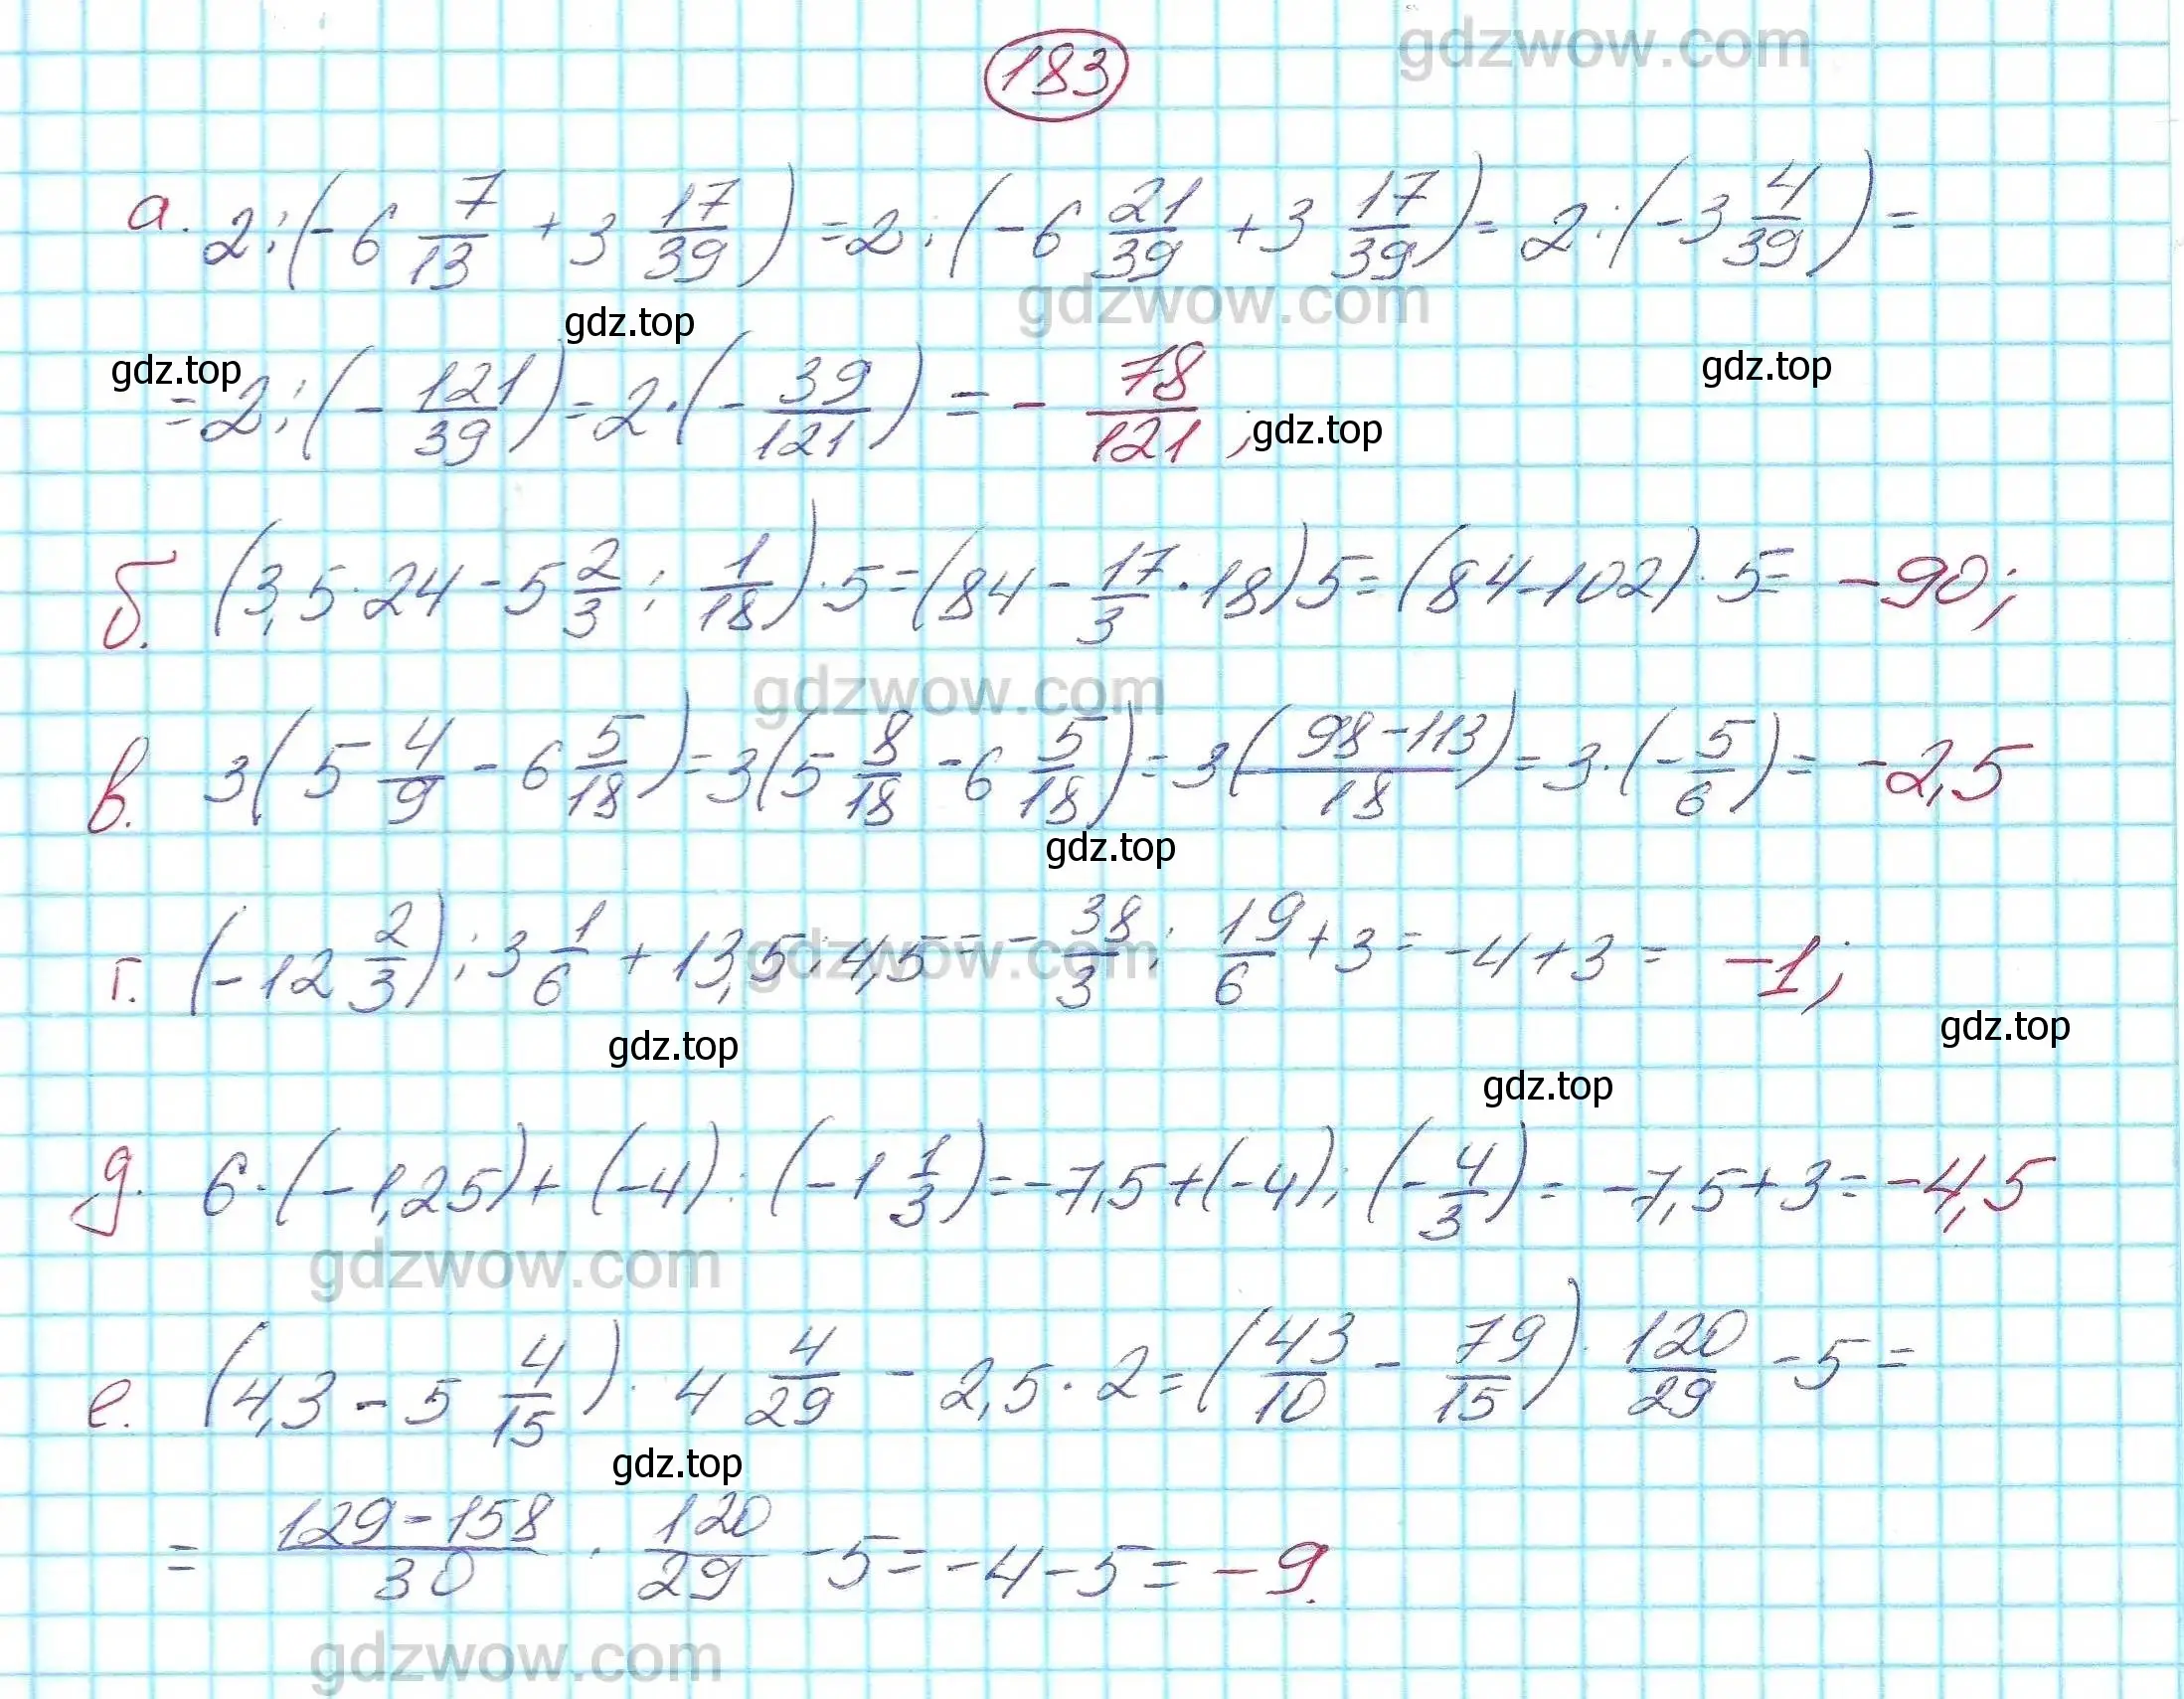 gdzwow.com
183
а. 2:(-6 7/13 + 3 17/39) = 2:(-6 21/39 + 3 17/39) = 2:(-3 4/39) =
gdzwow.com
gdz.top
gdz.top gdz.top
= 2:(- 121/39) = 2·(- 39/121) = - 78/121; gdz.top
б. (3,5·24 - 5 2/3 : 1/18)·5 = (84 - 17/3 · 18)5 = (84-102)·5 = -90;
gdzwow.com
в. 3(5 4/9 - 6 5/18) = 3(5 8/18 - 6 5/18) = 3( 98-113/18 ) = 3·(- 5/6) = -2,5
gdz.top
г. (-12 2/3) : 3 1/6 + 13,5:4,5 = - 38/3 : 19/6 + 3 = -4+3 = -1;
gdzwow.com
gdz.top gdz.top
gdz.top
д. 6·(-1,25)+(-4):(-1 1/3) = -7,5+(-4):(- 4/3) = -7,5+3 = -4,5
gdzwow.com
е. (4,3 - 5 4/15) · 4 4/29 - 2,5·2 = (43/10 - 79/15) · 120/29 - 5 =
gdz.top
= 129-158/30 · 120/29 - 5 = -4-5 = -9.
gdzwow.com